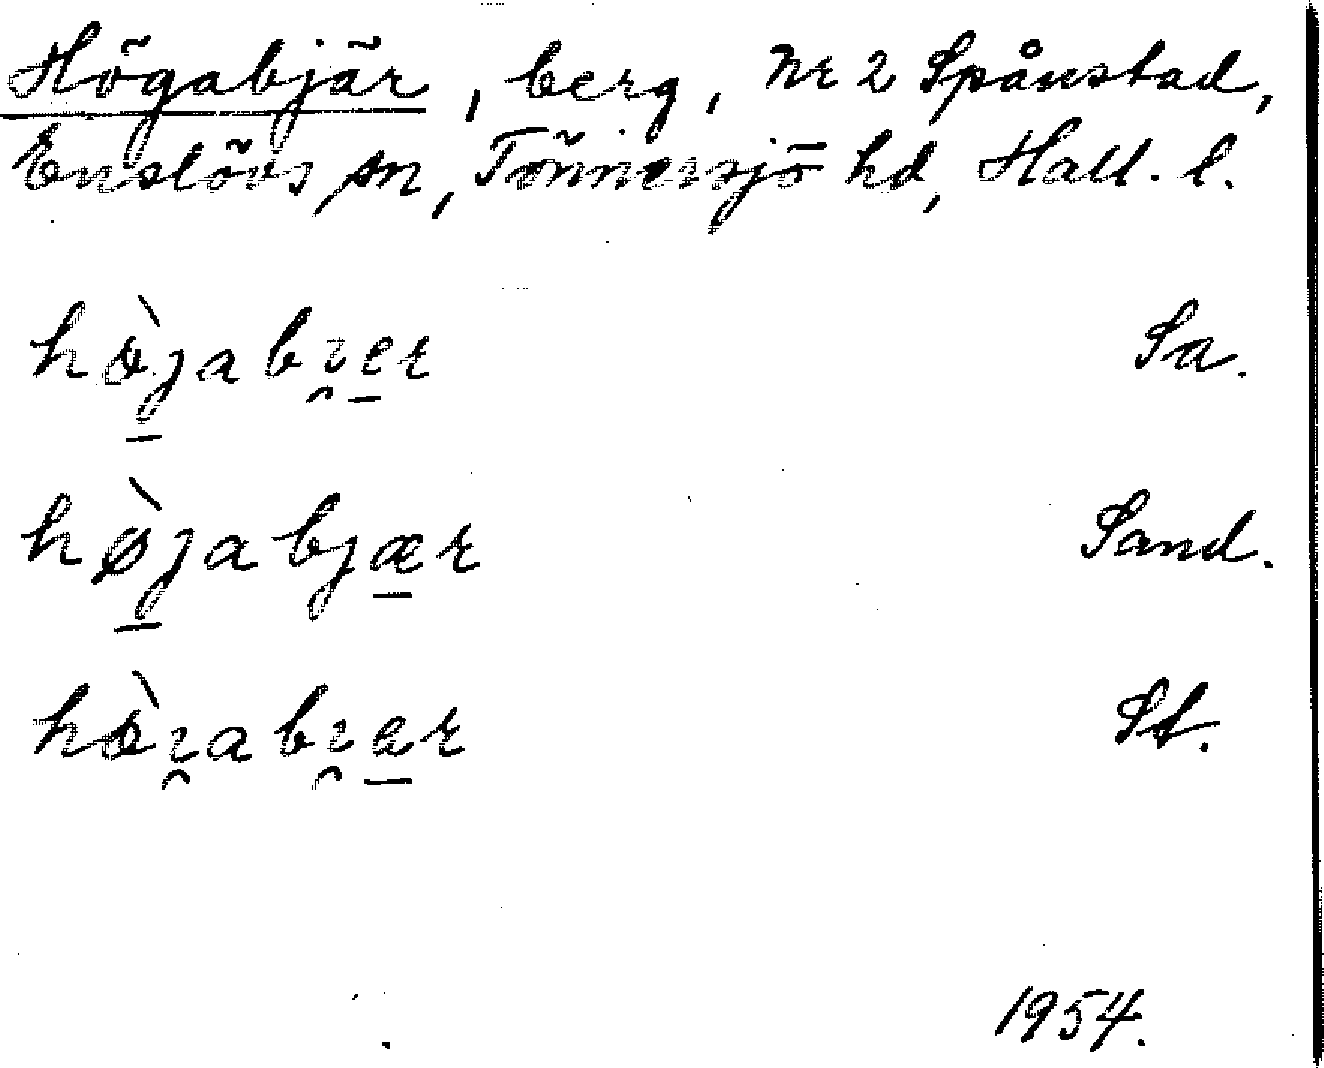 Högabjär, berg, nr 2 Spånstad,
Enslövs sn, Tönnersjö hd, Hall. l.
Sa.
hø̀jabjær Sand.
St.
1954.